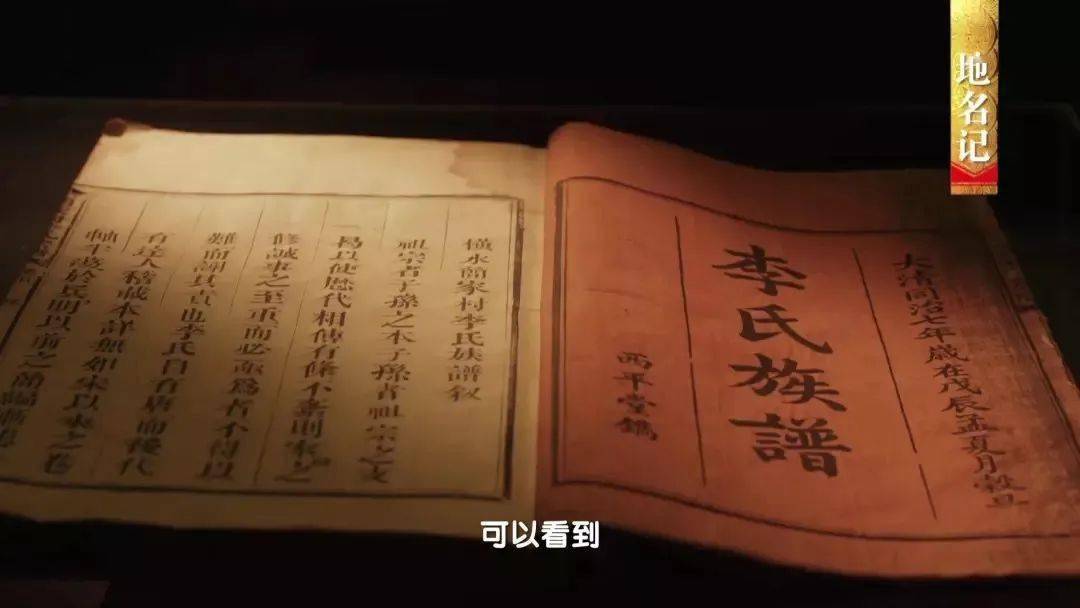 地名记
大清同治七年歲在戊辰孟夏月穀旦
李氏族譜
西平堂鐫
橫水家村李氏族譜叙
祖宗者子孫之本子孫者祖宗之支
曷以使歷代相傳有條不紊則家之
修誠事之至重而必為者不得以
難而謝其責也李氏自有唐而後代
有達人稽載本詳無如宋以來之卷
軸半沒於兵明以前之簡編漸
可以看到